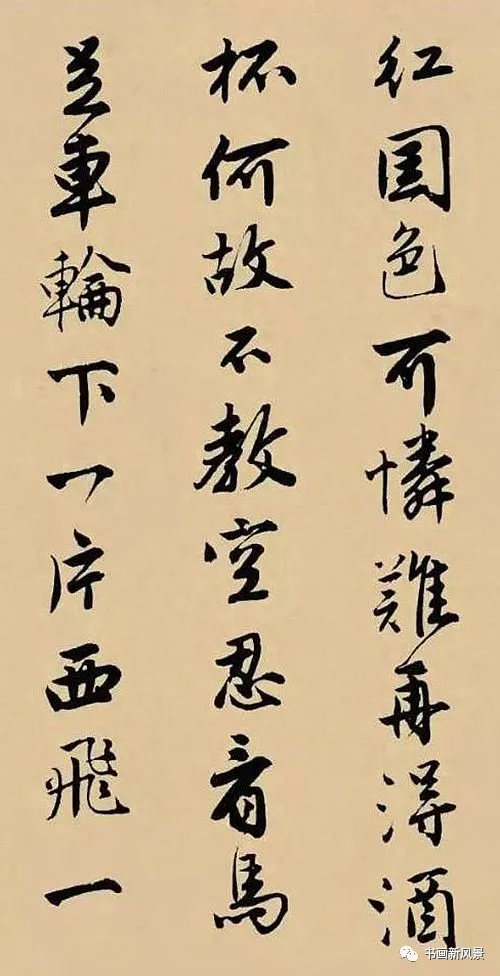 紅国色可憐難再得酒
杯何故不教空忍看馬
足車輪下一片西飛一
书画新风景